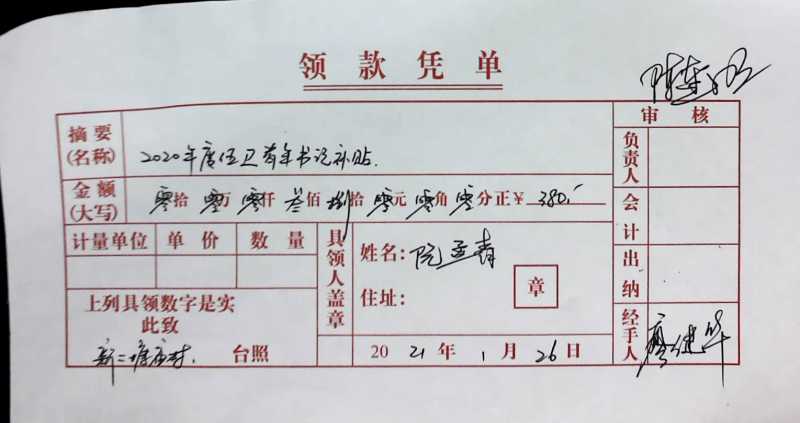 领款凭单
审核
摘要
(名称)
2020年度伍卫青年书记补贴.
负责人
金额
(大写)
零拾零万零仟叁佰捌拾零元零角零分正¥380.-
会计
计量单位 单价 数量
具领人盖章
姓名: 阮亚青
住址:
章
出纳
上列具领数字是实
此致
新二塘庙村. 台照
2021年1月26日
经手人
廖建华